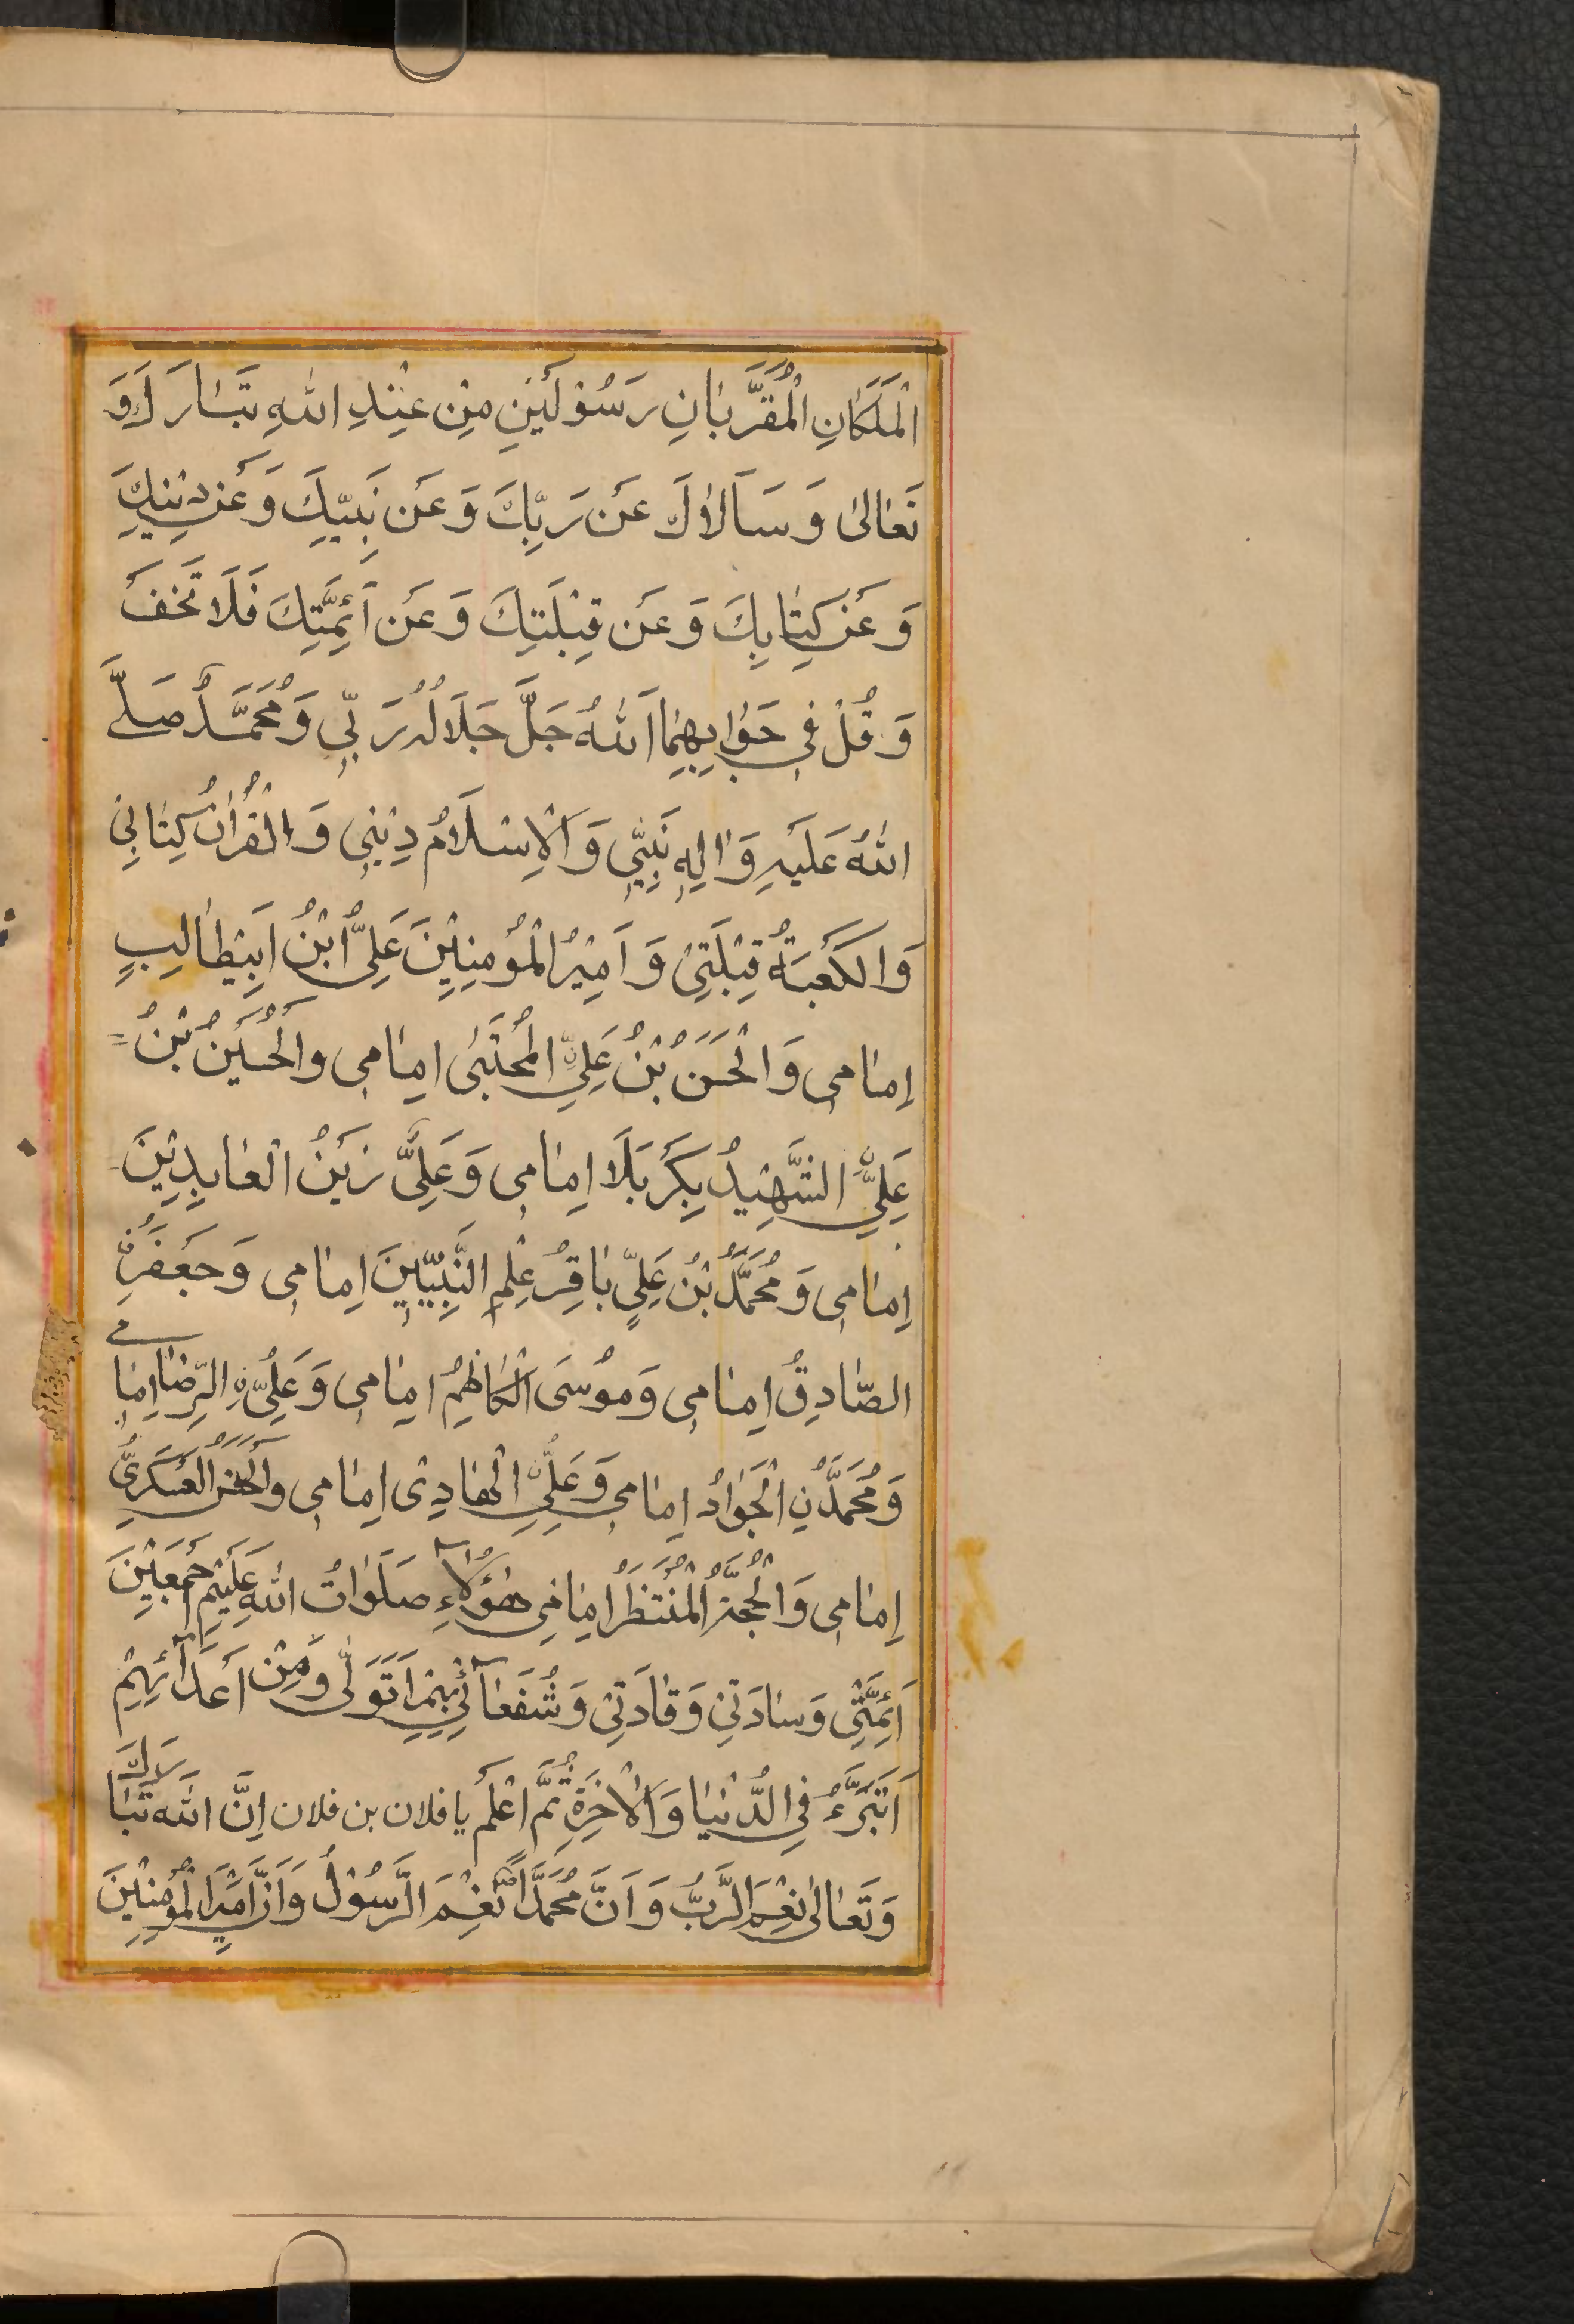 الْمَلَكَانِ الْمُقَرَّبَانِ رَسُوْلَيْنِ مِنْ عِنْدِ اللهِ تَبَارَكَ وَ
تَعَالىٰ وَ سَاَلَاكَ عَنْ رَبِّكَ وَ عَنْ نَبِيِّكَ وَ عَنْ دِيْنِكَ
وَ عَنْ كِتَابِكَ وَ عَنْ قِبْلَتِكَ وَ عَنْ اَئِمَّتِكَ فَلَا تَخَفْ
وَ قُلْ فِي جَوَابِهِمَا اَللهُ جَلَّ جَلَالُهُ رَبِّي وَ مُحَمَّدٌ صَلَّى
اللهُ عَلَيْهِ وَ اٰلِهِ نَبِيِّي وَ الْاِسْلَامُ دِيْنِي وَ الْقُرْاٰنُ كِتَابِيْ
وَ الْكَعْبَةُ قِبْلَتِيْ وَ اَمِيْرُ الْمُؤْمِنِيْنَ عَلِيُّ ابْنُ اَبِيْطَالِبٍ
اِمَامِي وَ الْحَسَنُ بْنُ عَلِيِّ الْمُجْتَبىٰ اِمَامِي وَ الْحُسَيْنُ بْنُ
عَلِيٍّ الشَّهِيْدُ بِكَرْبَلَا اِمَامِي وَ عَلِيٌّ زَيْنُ الْعَابِدِيْنَ
اِمَامِي وَ مُحَمَّدُ بْنُ عَلِيٍّ بَاقِرُ عِلْمِ النَّبِيِّيْنَ اِمَامِي وَ جَعْفَرُنِ
الصَّادِقُ اِمَامِي وَ مُوْسَى الْكَاظِمُ اِمَامِي وَ عَلِيُّنِ الرِّضَا اِمَامِي
وَ مُحَمَّدُنِ الْجَوَادُ اِمَامِي وَ عَلِيُّنِ الْهَادِى اِمَامِي وَ الْحَسَنُ الْعَسْكَرِيُّ
اِمَامِي وَ الْحُجَّةُ الْمُنْتَظَرُ اِمَامِي هٰؤُلَاۤءِ صَلَوَاتُ اللهِ عَلَيْهِمْ اَجْمَعِيْنَ
اَئِمَّتِيْ وَ سَادَتِيْ وَ قَادَتِيْ وَ شُفَعَاۤئِيْ بِهِمْ اَتَوَلّٰى وَ مِنْ اَعْدَاۤئِهِمْ
اَتَبَرَّءُ فِي الدُّنْيَا وَ الْاٰخِرَةِ ثُمَّ اعْلَمْ يا فلان بن فلان اِنَّ اللهَ تَبَارَكَ
وَ تَعَالىٰ نِعْمَ الرَّبُّ وَ اَنَّ مُحَمَّدًا نِعْمَ الرَّسُوْلُ وَ اَنَّ اَمِيْرَ الْمُؤْمِنِيْنَ